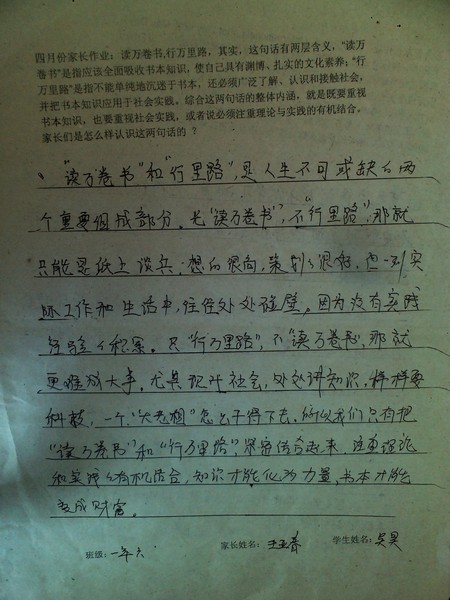 四月份家长作业：读万卷书,行万里路，其实，这句话有两层含义，“读万
卷书”是指应该全面吸收书本知识，使自己具有渊博、扎实的文化素养；“行
万里路”是指不能单纯地沉迷于书本，还必须广泛了解、认识和接触社会，
并把书本知识应用于社会实践。综合这两句话的整体内涵，就是既要重视
书本知识，也要重视社会实践，或者说必须注重理论与实践的有机结合。
家长们是怎么样认识这两句话的？
“读万卷书”和“行里路”，是人生不可或缺的两
个重要组成部分。光“读万卷书”，不“行里路”，那就
只能是纸上谈兵，想的很高，策划的很好，但一到实
际工作和生活中，往往处处碰壁。因为没有实践
经验的积累。只“行万里路”，不“读万卷书”，那就
更难成大事。尤其现代社会，处处讲知识，样样要
科技，一个“大老粗”怎么干得下去。所以我们只有把
“读万卷书”和“行万里路”紧密结合起来，注重理论
和实践的有机结合，知识才能化为力量，书本才能
变成财富。
班级：一年六 家长姓名：王玉春 学生姓名：吴昊